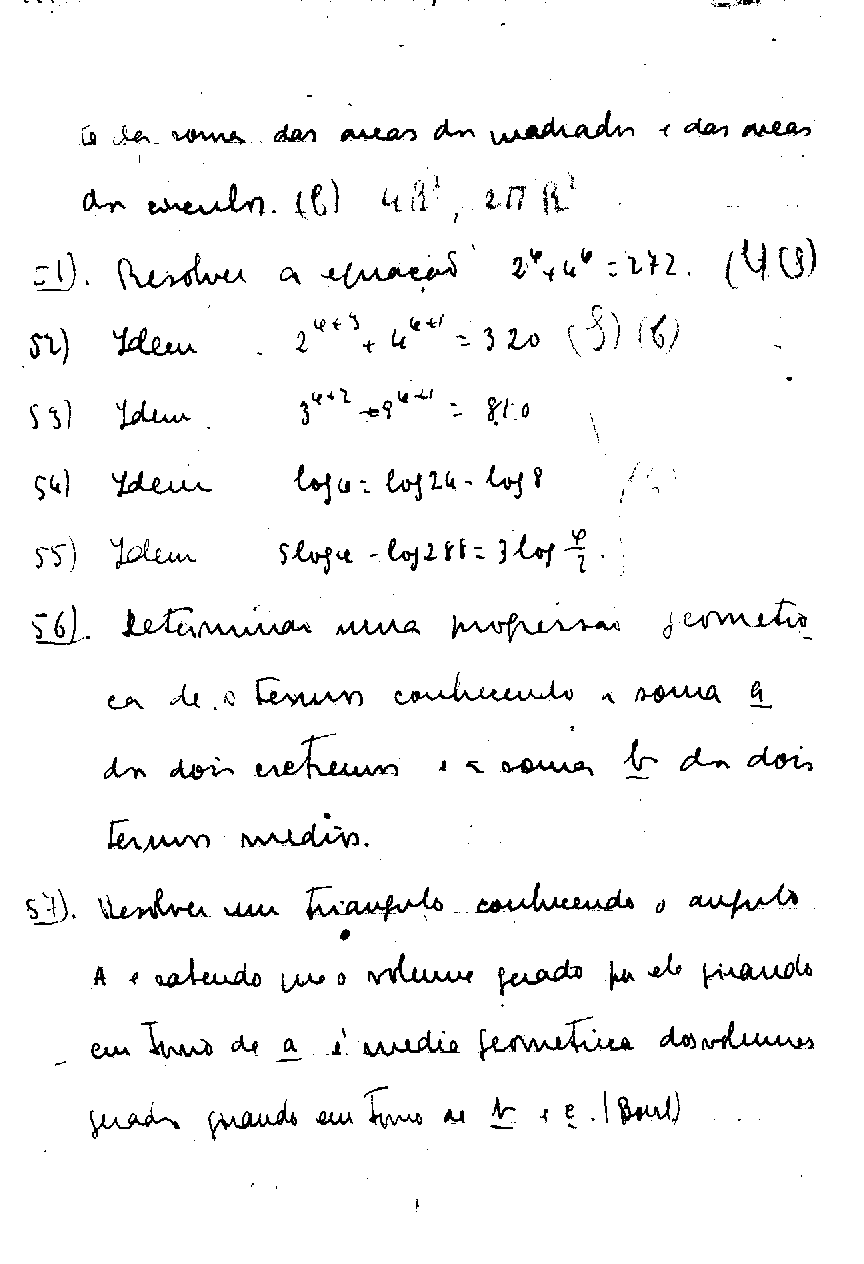 te da soma das areas dos quadrados e das areas
dos circulos. (C) 4R², 2πR²
51). Resolver a equação 2^x + 4^x = 272. (4)
52) Idem 2^{x+3} + 4^{x+1} = 320
53) Idem 3^{x+2} + 9^{x+1} = 810
54) Idem log x = log 24 - log 8
55) Idem 5 log x - log 288 = 3 log x/2.
56). Determinar uma progressão geometri
ca de termos conhecendo a soma a
dos dois extremos e a soma b dos dois
termos medios.
57). Resolver um triangulo conhecendo o angulo
A e sabendo que o volume gerado por ele girando
em torno de a é media geometrica dos volumes
gerados girando em torno de b e c.